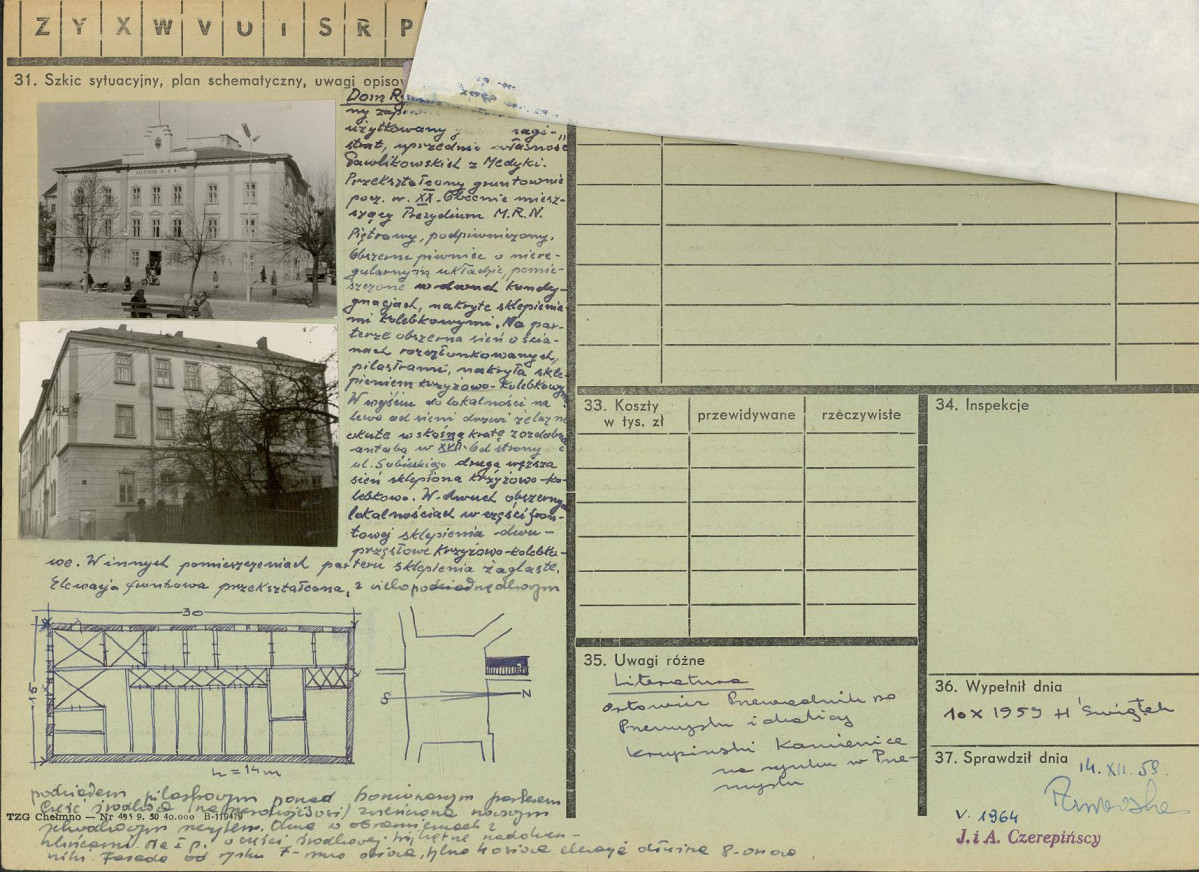 Z Y X W V U i S R P
31. Szkic sytuacyjny, plan schematyczny, uwagi opisow
Dom R
ny zap
użytkowany ragi-
strat, uprzednio własność
Pawlikowskich z Medyki.
Przekształcony gruntownie
pocz. w. XX. Obecnie miesz-
szący Prezydium M.R.N.
Piętrowy, podpiwniczony.
Obszerne piwnice o niere-
gularnym układzie, pomie-
szczone w dwuch kondy-
gnacjach, nakryte sklepienia-
mi kolebkowymi. Na par-
terze obszerna sień o ścia-
nach rozczłonkowanych,
pilastrami, nakryta skle-
pieniem krzyżowo-kolebkowym
W wejściu do lokalności na
lewo od sieni drzwi żelazne
okute w skośną kratę z ozdobną
antabą w XVII. Od strony
ul. Sobieskiego druga węższa
sień sklepiona krzyżowo-ko-
lebkowo. W dwuch obszernych
lokalnościach w części fron-
towej sklepienia dwu-
przęsłowe krzyżowo-kolebko-
we. W innych pomieszczeniach parteru sklepienia żaglaste.
Elewacja frontowa przekształcona, z wielkopodziałowym
30
15
h = 14 m
S N
podziałem pilastrowym ponad boniowanym parterem
Część środkowa zwieńczona nowszym
attykowym szczytem. Okna w obramieniach z
kluczami. Na I p. w części środkowej trójkątne nadokien-
niki. Fasada od rynku 7-mio osiowa, tylna 4 osiowa elewacje dłuższe 8-osiowe.
TZG Chełmno — Nr 495 9. 50 40.000 B-119479
33. Koszty
w tys. zł
przewidywane
rzeczywiste
34. Inspekcje
35. Uwagi różne
Literatura
Orłowicz Przewodnik po
Przemyślu i okolicy
Krupiński Kamienice
na rynku w Prze-
myślu
36. Wypełnił dnia
10 X 1959 H Świątek
37. Sprawdził dnia
14. XII. 59.
V. 1964
J. i A. Czerepińscy